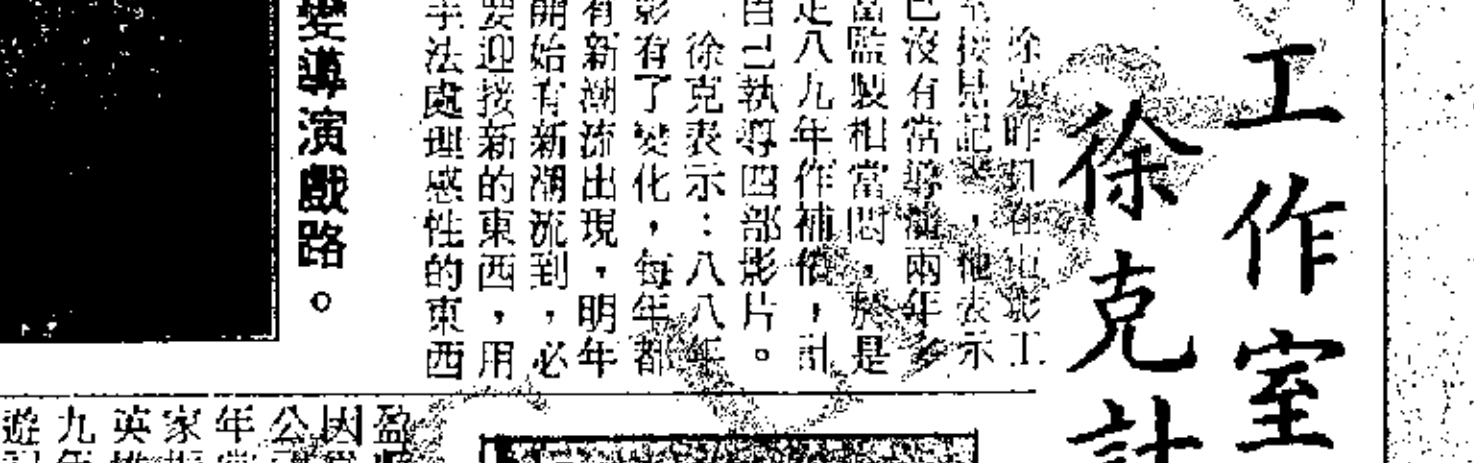 工作室
徐克計
徐克昨日在電影工
接見記，他表示
已沒有當導演兩年多
當監製相當悶，於是
定八九年作補償，計
自己執導四部影片。
徐克表示：八八年
影有了變化，每年都
有新潮流出現，明年
開始有新潮流到，必
要迎接新的東西，用
手法處理感性的東西
變導演戲路。
盈
因
公
年
家
英
九
遊